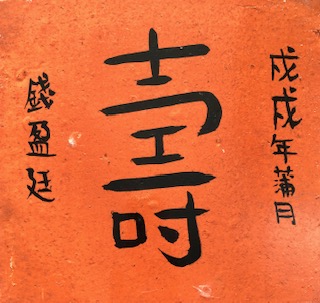 戊戌年蒲月
壽
錢盈廷